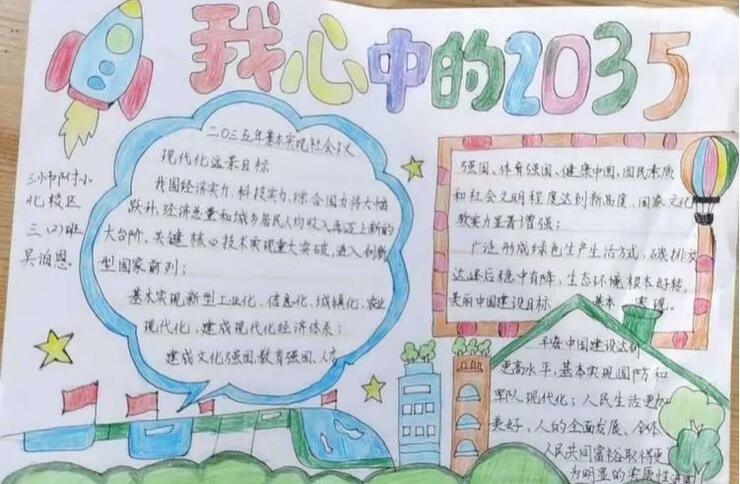 我心中的2035
三师附小
北校区
三、(4)班
吴泊恩
二〇三五年基本实现社会主义
现代化远景目标
我国经济实力、科技实力、综合国力将大幅
跃升,经济总量和城乡居民人均收入再迈上新的
大台阶,关键核心技术实现重大突破,进入创新
型国家前列;
基本实现新型工业化、信息化、城镇化、农业
现代化,建成现代化经济体系;
建成文化强国、教育强国、人才
强国、体育强国、健康中国,国民素质
和社会文明程度达到新高度,国家文化
软实力显著增强;
广泛形成绿色生产生活方式,碳排放
达峰后稳中有降,生态环境根本好转,
美丽中国建设目标 基本 实现。
平安中国建设达到
更高水平,基本实现国防和
军队现代化;人民生活更加
美好,人的全面发展、全体
人民共同富裕取得更
为明显的实质性进展